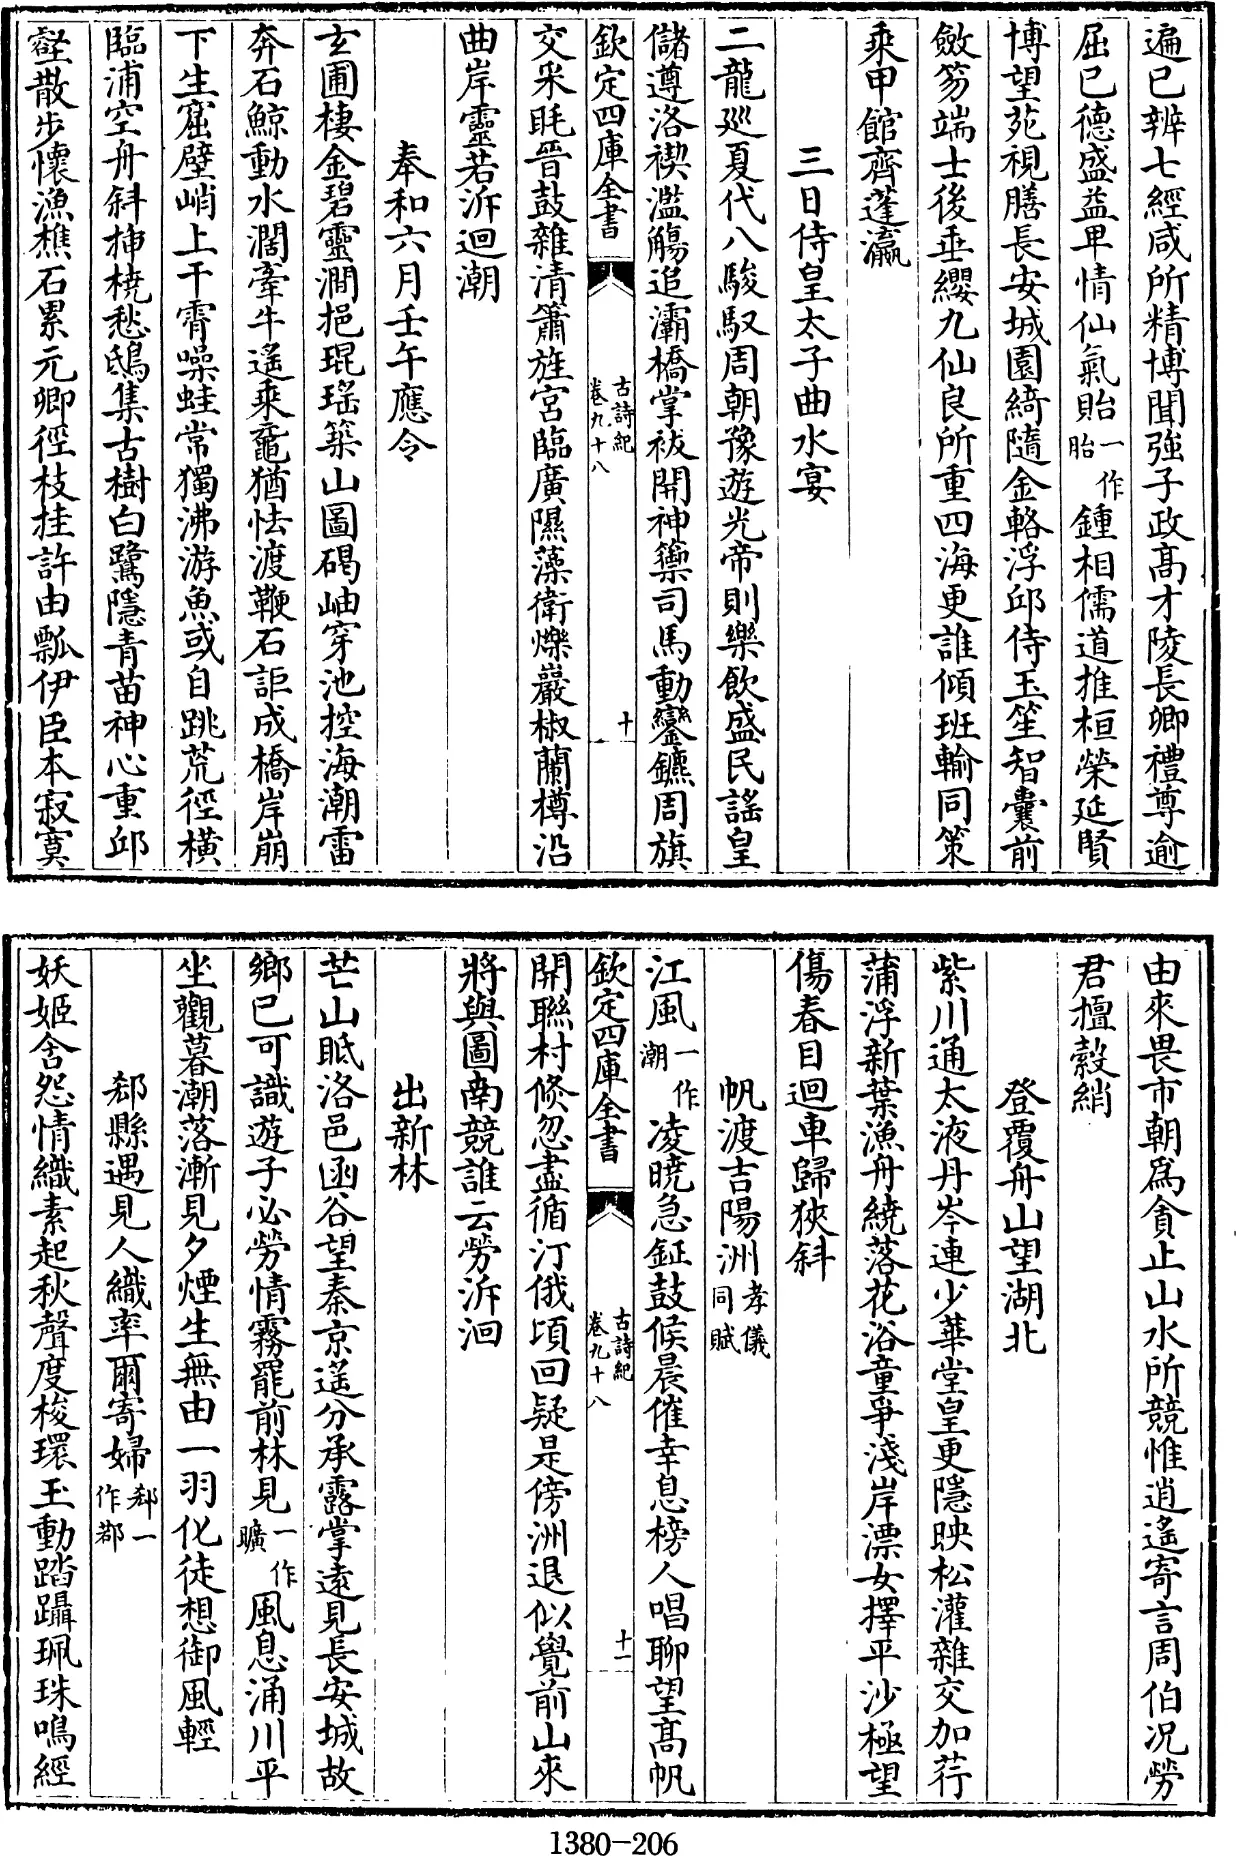 遍已辨七經咸所精博聞強子政高才陵長卿禮尊逾
屈已德盛益卑情仙氣貽一作胎鍾相儒道推桓榮延賢
博望苑視膳長安城園綺隨金輅浮邱侍玉笙智囊前
斂笏端士後垂纓九仙良所重四海更誰傾班輸同策
乘甲館齊蓬瀛
三日侍皇太子曲水宴
二龍廵夏代八駿馭周朝豫遊光帝則樂飲盛民謠皇
儲遵洛禊濫觴追灞橋掌袚開神籞司馬動鑾鑣周旗
欽定四庫全書
古詩紀
卷九十八
十
交采眊晉鼓雜清簫旌宮臨廣隰藻衛爍巖椒蘭樽沿
曲岸靈若泝迴潮
奉和六月壬午應令
玄圃棲金碧靈澗挹琨瑶築山圖碣岫穿池控海潮雷
奔石鯨動水濶牽牛遥乘黿猶怯渡鞭石詎成橋岸崩
下生窟壁峭上干霄噪蛙常獨沸游魚或自跳荒徑橫
臨浦空舟斜插橈愁鴟集古樹白鷺隱青苗神心重邱
壑散步懷漁樵石累元卿徑枝挂許由瓢伊臣本寂寞
由來畏市朝爲貪止山水所競惟逍遥寄言周伯况勞
君擅縠綃
登覆舟山望湖北
紫川通太液丹岑連少華堂皇更隱映松灌雜交加荇
蒲浮新葉漁舟繞落花浴童爭淺岸漂女擇平沙極望
傷春目迴車歸狹斜
帆渡吉陽洲孝儀同賦
江風一作潮凌曉急鉦鼓候晨催幸息榜人唱聊望髙帆
欽定四庫全書
古詩紀
卷九十八
十一
開聯村倐忽盡循汀俄頃回疑是傍洲退似覺前山來
將與圖南競誰云勞泝洄
出新林
芒山眡洛邑函谷望秦京遥分承露掌遠見長安城故
鄉已可識遊子必勞情霧罷前林見一作曠風息涌川平
坐觀暮潮落漸見夕煙生無由一羽化徒想御風輕
郄縣遇見人織率爾寄婦郄一作鄀
妖姬含怨情織素起秋聲度梭環玉動踏躡珮珠鳴經
1380-206